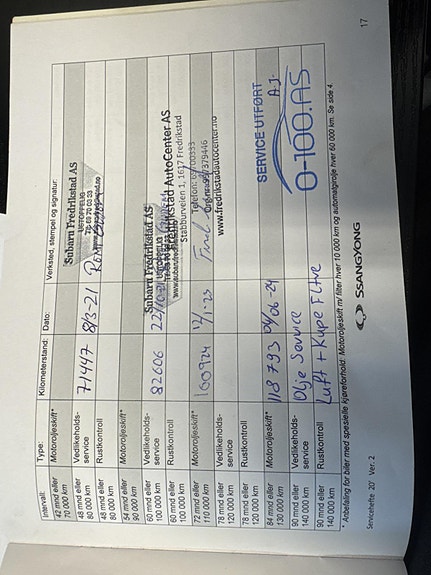 Intervall: Type: Kilometerstand: Dato: Verksted, stempel og signatur:
42 mnd eller 70 000 km Motoroljeskift*
48 mnd eller 80 000 km Vedlikeholds-service 71447 8/3-21 Subaru Fredrikstad AS
48 mnd eller 80 000 km Rustkontroll
54 mnd eller 90 000 km Motoroljeskift*
60 mnd eller 100 000 km Vedlikeholds-service 82606 Subaru Fredrikstad AS
60 mnd eller 100 000 km Rustkontroll
Fredrikstad AutoCenter AS
Stabburveien 1, 1617 Fredrikstad
72 mnd eller 110 000 km Motoroljeskift* 12/1-23
www.fredrikstadautocenter.no
78 mnd eller 120 000 km Vedlikeholds-service
78 mnd eller 120 000 km Rustkontroll
84 mnd eller 130 000 km Motoroljeskift* 118 793 SERVICE UTFØRT
A.J.
90 mnd eller 140 000 km Vedlikeholds-service Olje Service
O-100.AS
90 mnd eller 140 000 km Rustkontroll Luft + Kupe Filtre
* Anbefaling for biler med spesielle kjøreforhold: Motoroljeskift m/ filter hver 10 000 km og automatgirolje hver 60 000 km. Se side 4.
Servicehefte 20' Ver. 2
SSANGYONG
17